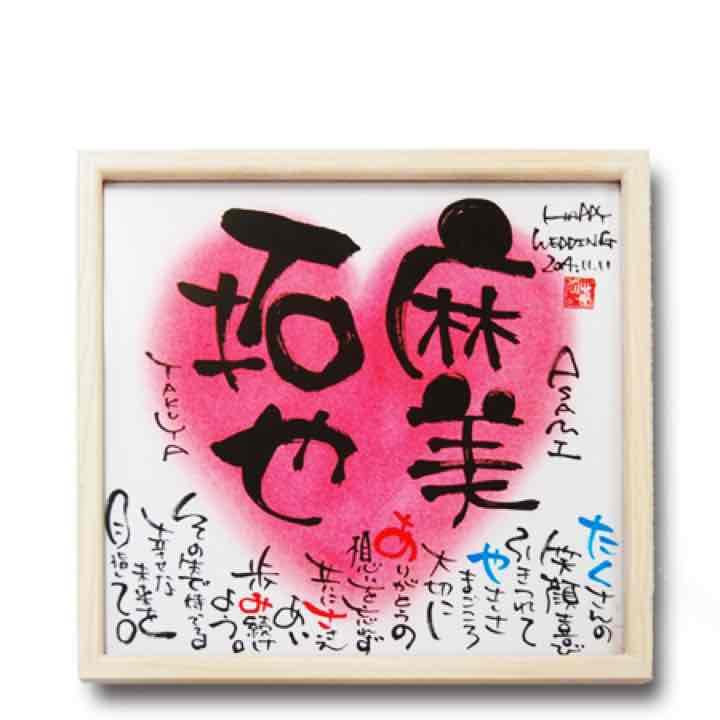 HAPPY
WEDDING
2014.11.11
麻美
ASAMI
拓也
TAKUYA
たくさんの
笑顔喜び
引きつれて
やさしさ
まごころ
大切に
ありがとうの
想いを忘れず
共にささえ
あい
歩み続け
よう。
その先で待ってる
幸せな
未来を
目指して。